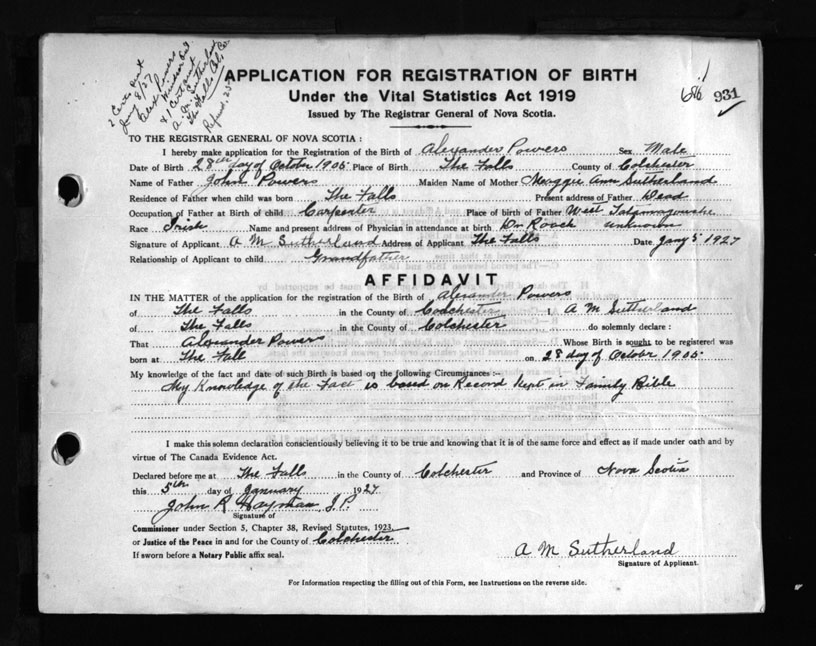 2 Certs sent
Jany 8/27
Alex Powers
Windsor Ont
& 1 Cert sent
A. M. Sutherland
The Falls Col. Co.
Refund .25
APPLICATION FOR REGISTRATION OF BIRTH
Under the Vital Statistics Act 1919
Issued by The Registrar General of Nova Scotia.
931
TO THE REGISTRAR GENERAL OF NOVA SCOTIA :
I hereby make application for the Registration of the Birth of Alexander Powers Sex Male
Date of Birth 28th day of October 1905. Place of Birth The Falls County of Colchester
Name of Father John Powers Maiden Name of Mother Maggie Ann Sutherland
Residence of Father when child was born The Falls Present address of Father Dead
Occupation of Father at Birth of child Carpenter Place of birth of Father West Tatamagouche
Race Irish Name and present address of Physician in attendance at birth Dr Roach unknown
Signature of Applicant A M Sutherland Address of Applicant The Falls Date Jany 5 1927
Relationship of Applicant to child Grandfather
AFFIDAVIT
IN THE MATTER of the application for the registration of the Birth of Alexander Powers
of The Falls in the County of Colchester I, A M Sutherland
of The Falls in the County of Colchester do solemnly declare :
That Alexander Powers Whose Birth is sought to be registered was
born at The Fall on 28 day of October 1905
My knowledge of the fact and date of such Birth is based on the following Circumstances :—
My Knowledge of the Fact is based on Record kept in Family Bible
I make this solemn declaration conscientiously believing it to be true and knowing that it is of the same force and effect as if made under oath and by
virtue of The Canada Evidence Act.
Declared before me at The Falls in the County of Colchester and Province of Nova Scotia
this 5th day of January 1927
John R Hayman J.P.
Signature of
Commissioner under Section 5, Chapter 38, Revised Statutes, 1923.
or Justice of the Peace in and for the County of Colchester
If sworn before a Notary Public affix seal.
A M Sutherland
Signature of Applicant.
For Information respecting the filling out of this Form, see Instructions on the reverse side.